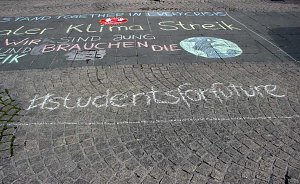 STAND TOGETHER IN EVERY CRISIS
aler Klima Streik
WIR SIND JUNG
BRAUCHEN DIE
IK
#studentsforfuture